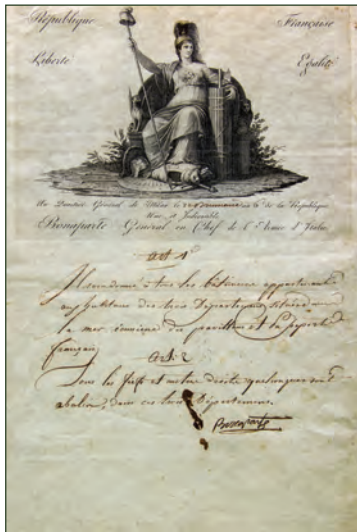 République Française
Liberté Egalité
Au Quartier Général de Milan le de la République
Une et Indivisible
Bonaparte Général en Chef de l'Armée d'Italie
art 1er
Il sera donné à tous les bâtiments appartenant
aux habitans des trois Départemens
la mer Ionienne du pavillon et la
français
art. 2
Tous les fiefs et autres droits quelconques sont
abolis, dans ces trois Départemens.
Bonaparte